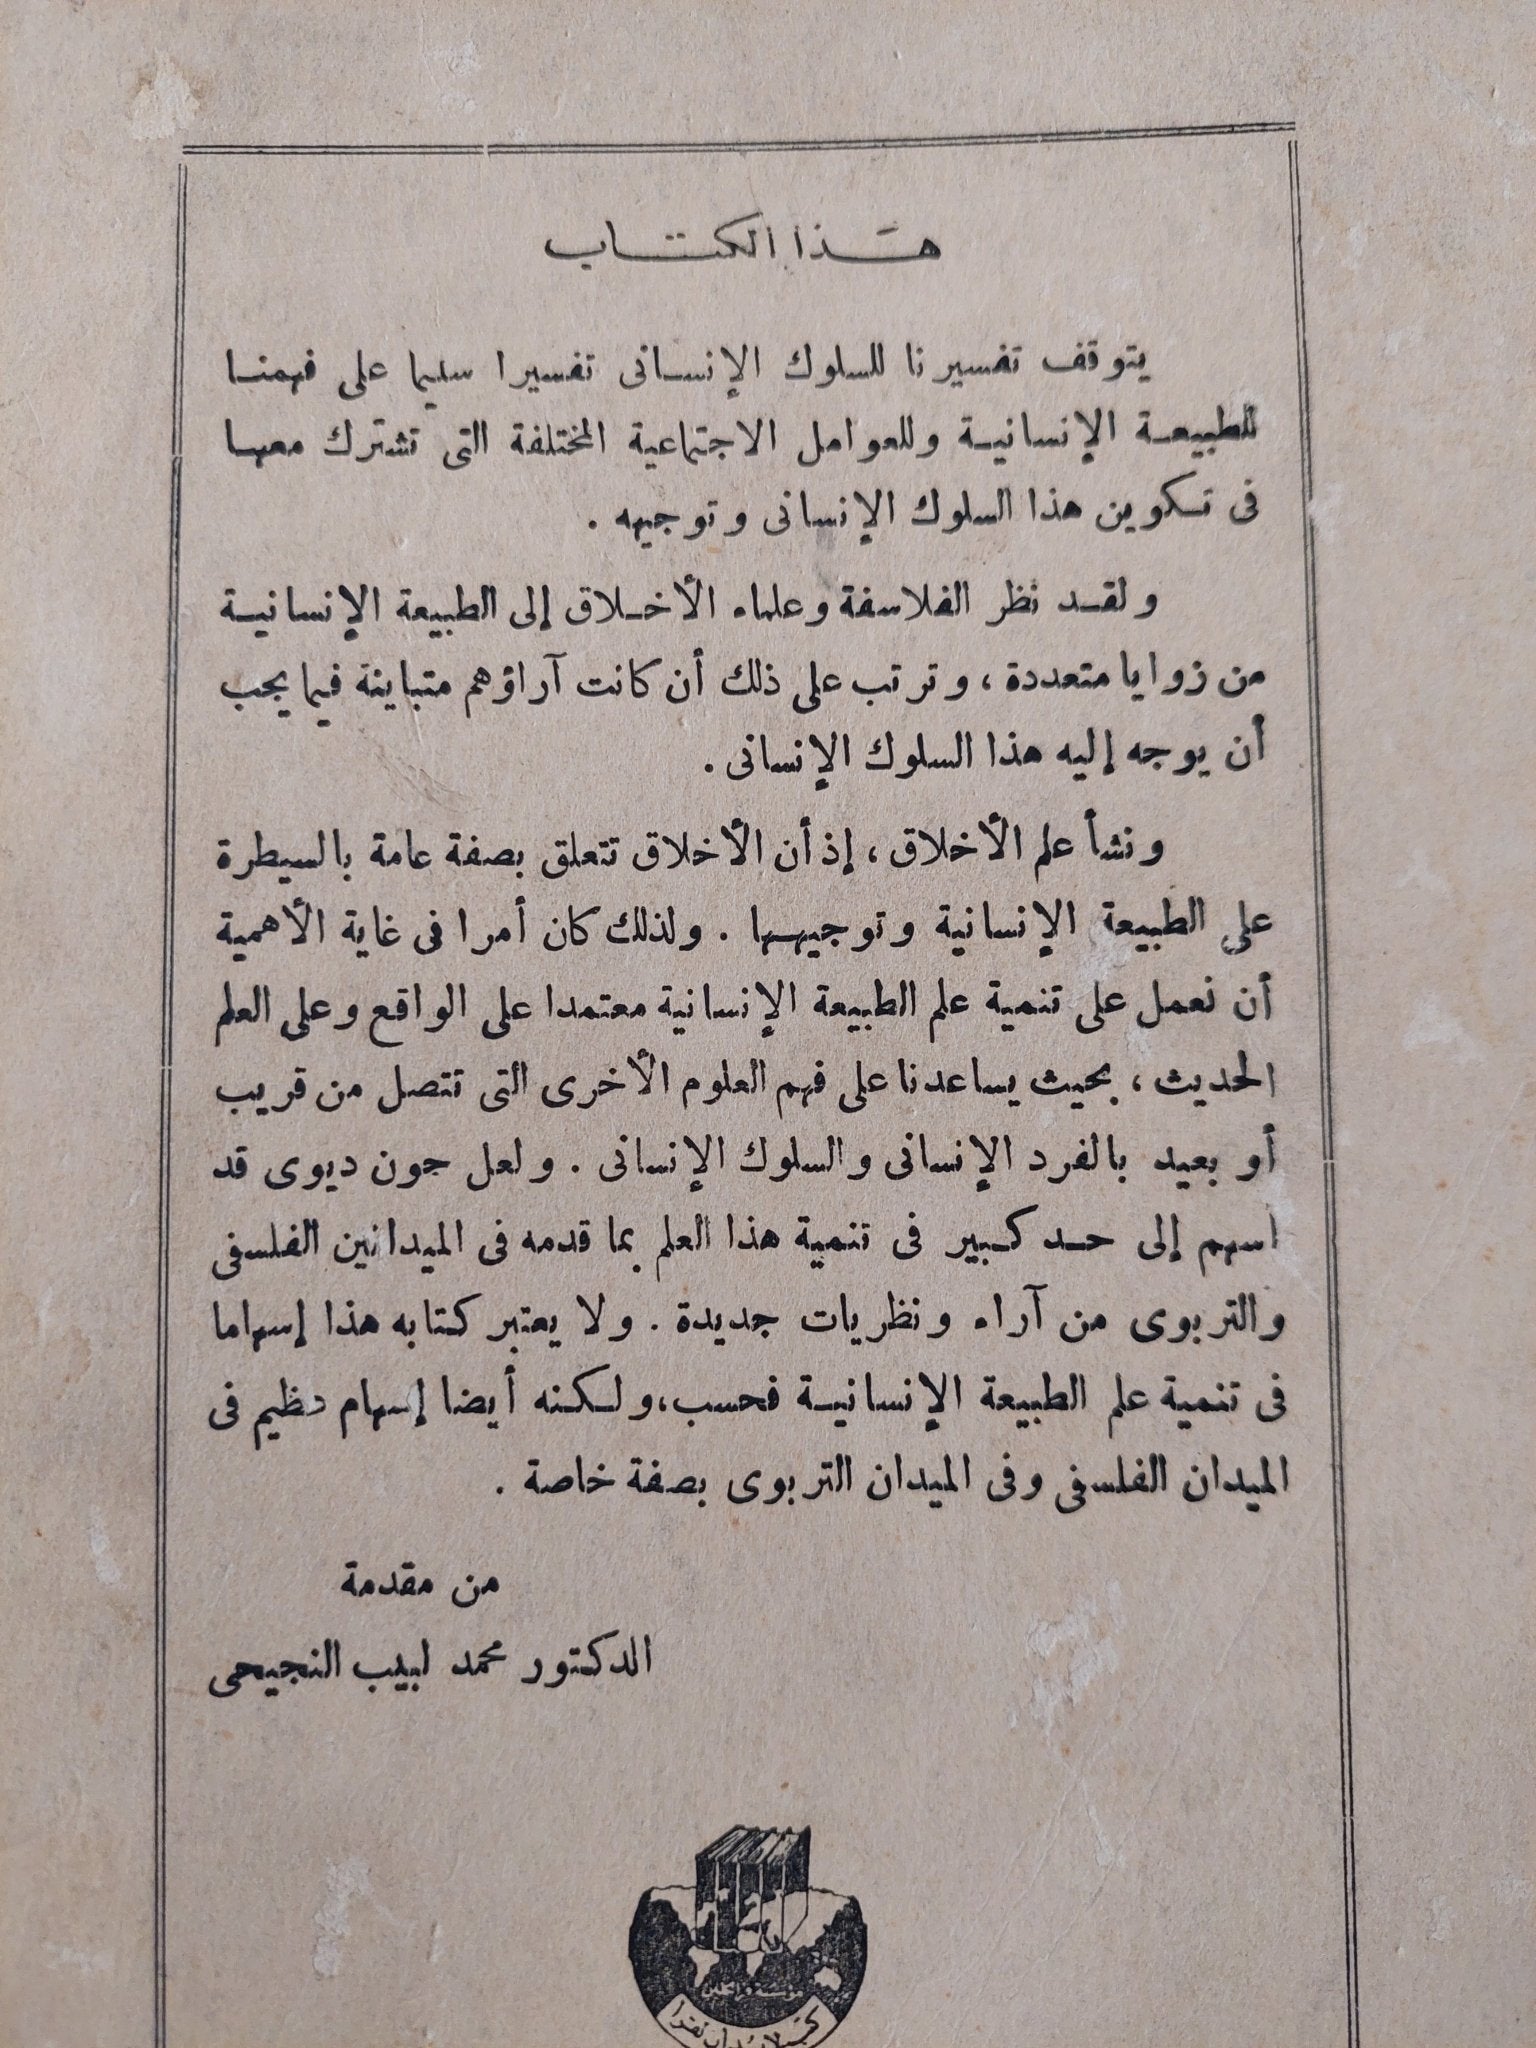 هذا الكتاب
يتوقف تفسيرنا للسلوك الإنسانى تفسيرا سليما على فهمنا
للطبيعة الإنسانية وللعوامل الاجتماعية المختلفة التى تشترك معها
فى تكوين هذا السلوك الإنسانى وتوجيهه .
ولقد نظر الفلاسفة وعلماء الأخلاق إلى الطبيعة الإنسانية
من زوايا متعددة ، وترتب على ذلك أن كانت آراؤهم متباينة فيما يجب
أن يوجه إليه هذا السلوك الإنسانى .
ونشأ علم الأخلاق ، إذ أن الأخلاق تتعلق بصفة عامة بالسيطرة
على الطبيعة الإنسانية وتوجيهها . ولذلك كان أمرا فى غاية الأهمية
أن نعمل على تنمية علم الطبيعة الإنسانية معتمدا على الواقع وعلى العلم
الحديث ، بحيث يساعدنا على فهم العلوم الأخرى التى تتصل من قريب
أو بعيد بالفرد الإنسانى والسلوك الإنسانى . ولعل جون ديوى قد
اسهم إلى حد كبير فى تنمية هذا العلم بما قدمه فى الميدانين الفلسفى
والتربوى من آراء ونظريات جديدة . ولا يعتبر كتابه هذا إسهاما
فى تنمية علم الطبيعة الإنسانية فحسب، ولكنه أيضا إسهام عظيم فى
الميدان الفلسفى وفى الميدان التربوى بصفة خاصة .
من مقدمة
الدكتور محمد لبيب النجيحى
مؤسسة فرانكلين